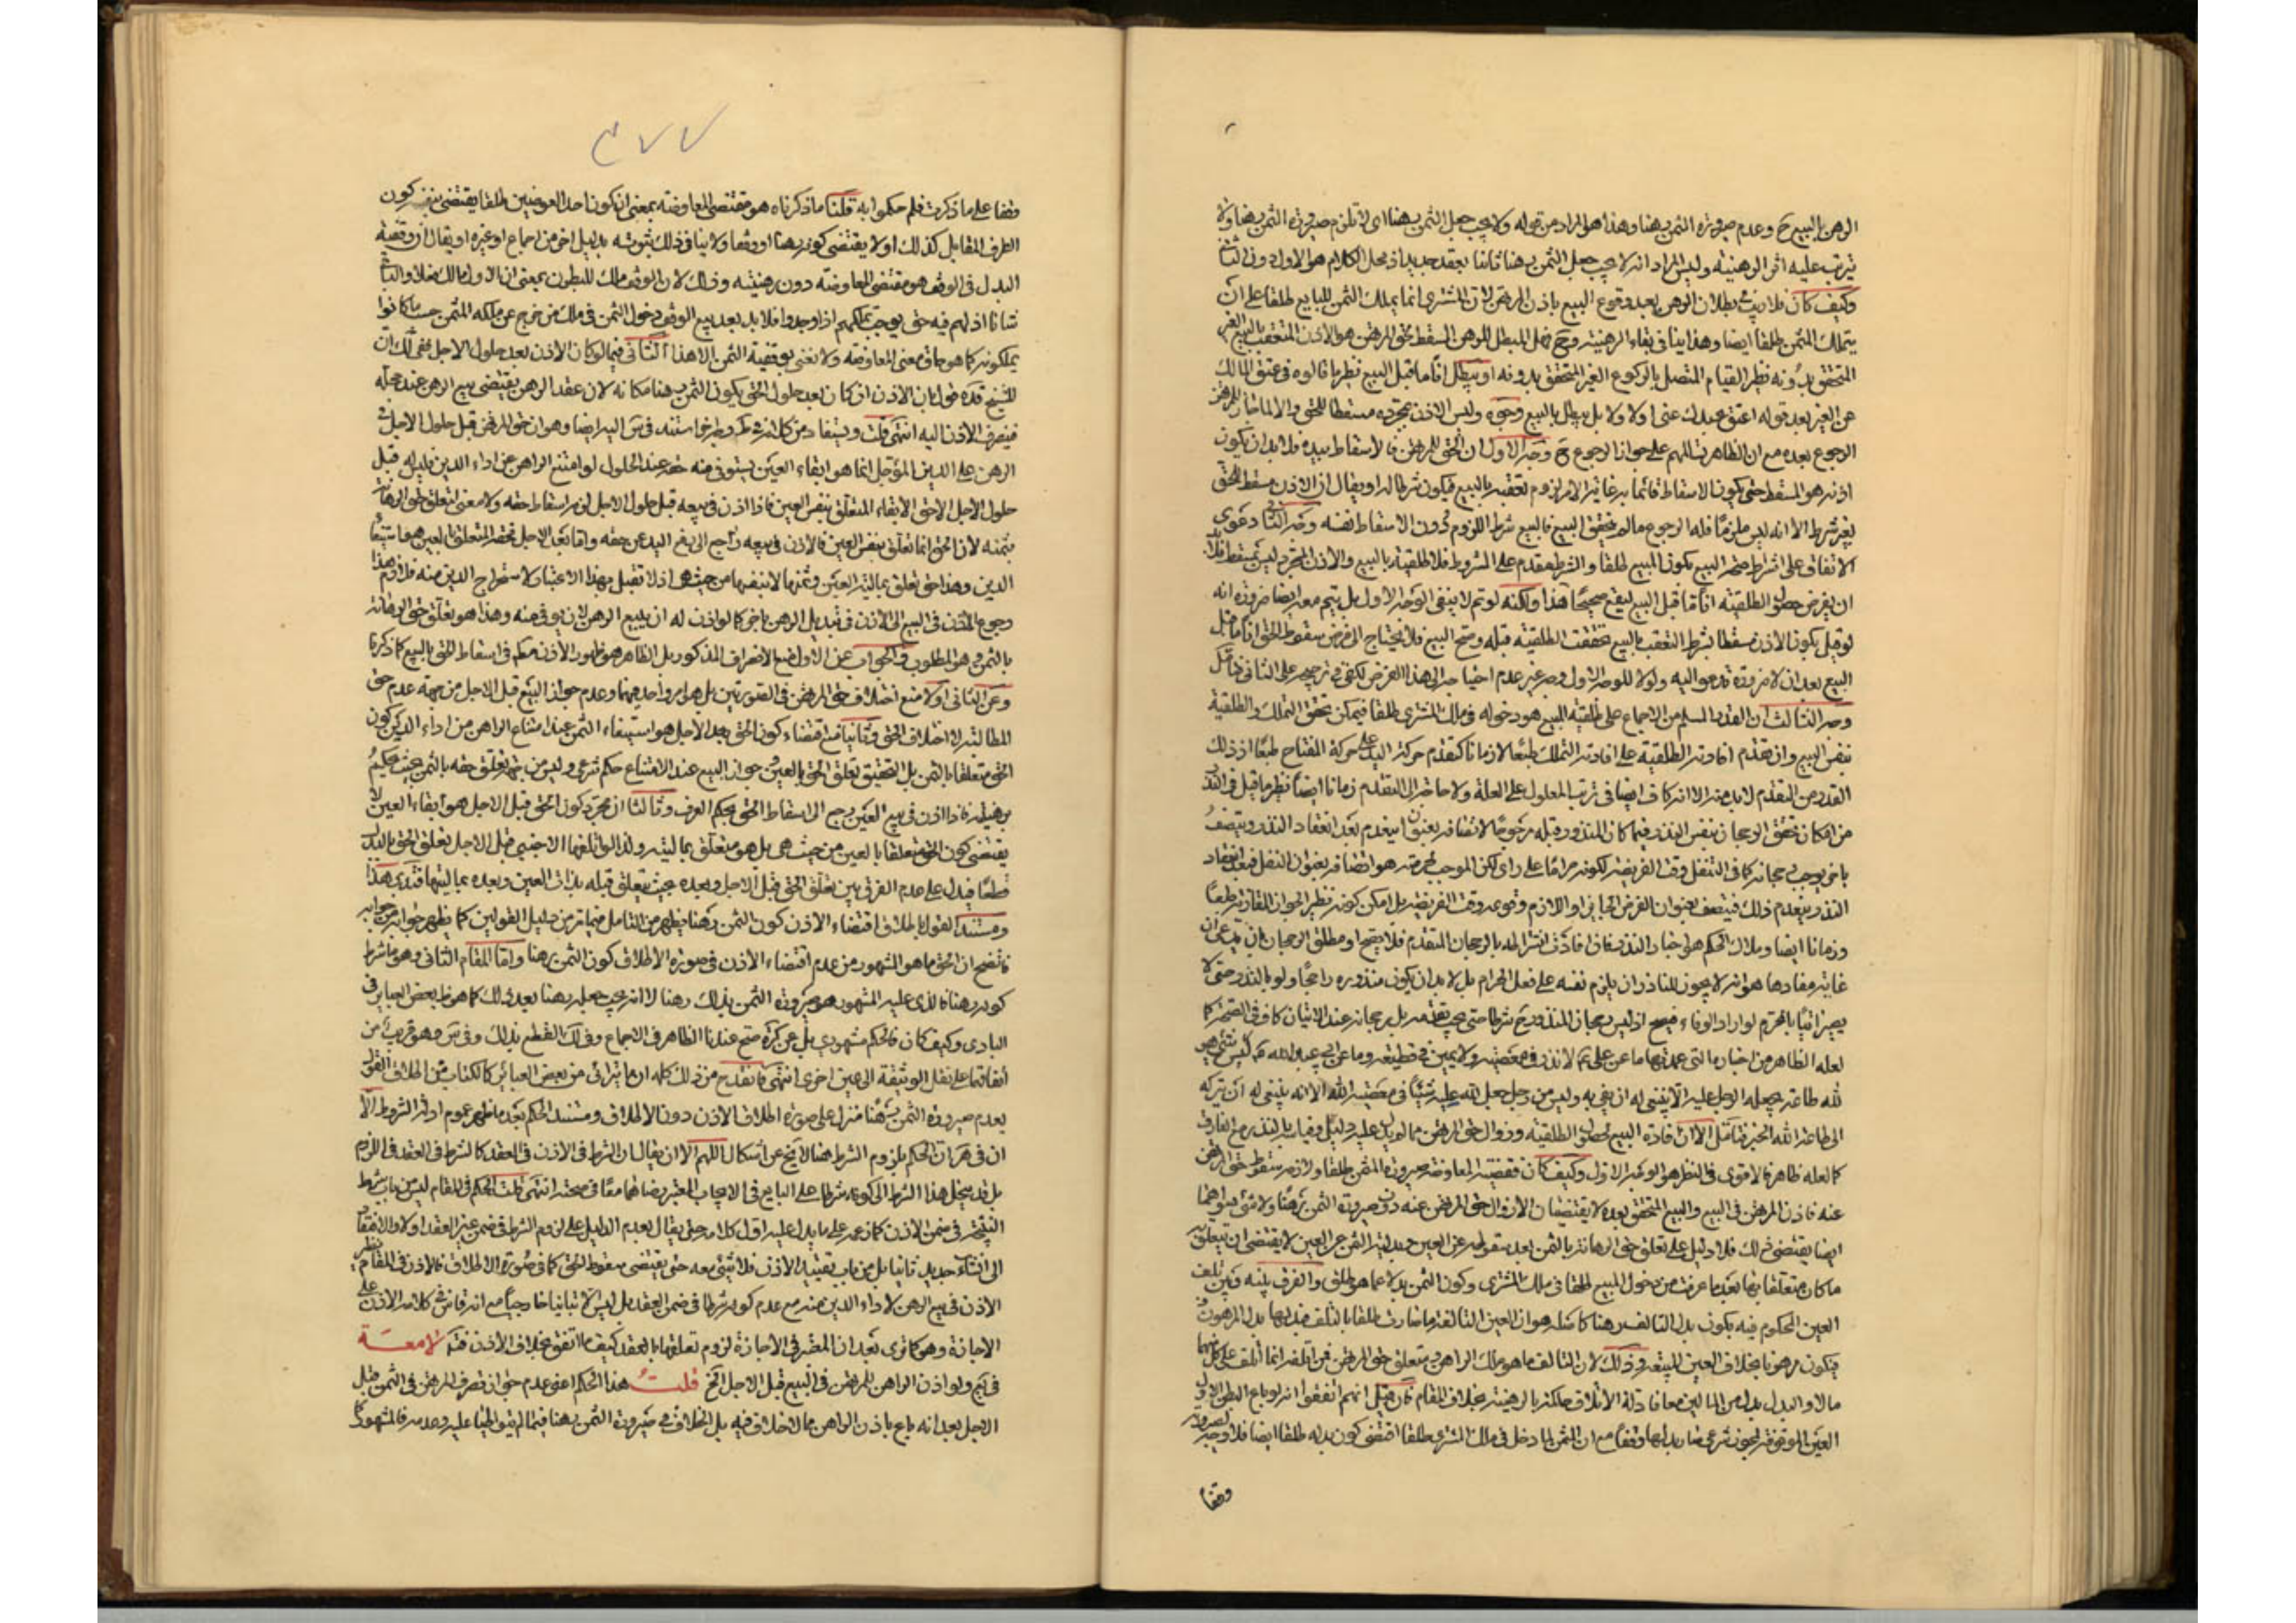 الرهن بالبيع ح وعدم صيرورة الثمن رهنا وهذا هو المراد من قوله ولا يجب جعل الثمن رهنا اى لا تلزم صيرورة الثمن رهنا ولا
يترتب عليه اثر الرهنية وليس المراد انه لا يجب جعل الثمن رهنا ثانيا بعقد جديد اذ محل الكلام هو الاول دون الثانى
وكيف كان فلا ريب فى بطلان الرهن بعد وقوع البيع باذن المرتهن لان المشترى انما يملك الثمن للبايع طلقا على ان
يتملك المثمن طلقا ايضا وهذا ينافى بقاء الرهنية وح فهل المبطل للرهن المسقط لحق المرتهن هو الاذن المتعقب بالبيع الغير
المتحقق بدونه نظير القيام المتصل بالركوع الغير المتحقق بدونه او يبطل انا ما قبل البيع نظير ما قالوه فى عتق المالك
عن الغير بعد قوله اعتق عبدك عنى او لا ولا بل يبطل بالبيع وجوه وليس الاذن بمجرده مسقطا للحق والا لما جاز للمرتهن
الرجوع بعده مع ان الظاهر منهم على جواز الرجوع ح وجه الاول ان الحق للمرتهن فالاسقاط بيده فلا بد ان يكون
اذنه هو المسقط حتى يكون الاسقاط قائما به غاية الامر لزوم تعقبه بالبيع فيكون شرطا له او يقال ان الاذن مسقط للحق
بغير شرط الا انه ليس ملزما فله الرجوع ما لم يتحقق البيع فالبيع شرط اللزوم دون الاسقاط نفسه وجه الثانى دعوى
الاتفاق على اشتراط صحة البيع بكون المبيع طلقا والشرط مقدم على المشروط فلا طلقية بالبيع والاذن المجرد ليس بمسقط فلا بد
ان يفرض حصول الطلقية انا ما قبل البيع ليقع صحيحا هذا ولكنه لو تم لا ينفى الوجه الاول بل يتم معه ايضا ضرورة انه
لو قيل بكون الاذن مسقطا بشرط التعقب بالبيع تحققت الطلقية قبله وصح البيع فلا يحتاج الى فرض سقوط الحق انا ما قبل
البيع بعد ان لا ضرورة تدعو اليه ولو لا للوجه الاول وجه غير عدم احتياجه الى هذا الفرض لكفى فى ترجيحه على الثانى فتامل
وجه الثالث ان القدر المسلم من الاجماع على طلقية المبيع هو دخوله فى ملك المشترى طلقا فيمكن تحقق التملك والطلقية
بنفس البيع وان تقدم افادته الطلقية على افادته التملك طبعا لا زمانا كتقدم حركة اليد على حركة المفتاح طبعا اذ ذلك
القدر من التقدم لا بد منه الا انه كاف ايضا فى ترتب المعلول على العلة ولا حاجة الى التقدم زمانا ايضا نظير ما قيل فى النذر
من امكان تحقق الرجحان بنفس النذر فيما كان المنذور قبله مرجوحا لاتصافه بعنوان ينعدم بعد انعقاد النذر ويتصف
باخر يوجب رجحانه كما فى التنفل وقت الفريضة لكونه حراما على راى لكن الموجب لحرمته هو اتصافه بعنوان النفل فبعد انعقاد
النذر ينعدم ذلك فيتصف بعنوان الفرض
وزمانا ايضا وملاك الحكم هو اخبار النذر
غاية مفادها هو انه لا يجوز للناذر ان يلزم نفسه على فعل الحرام بل لا بد ان يكون منذوره راجحا ولو بالنذر حتى لا
يصير اتيا بالمحرم لو اراد الوفاء فيصح اذ ليس رجحان المنذور ح شرطا حتى يجب تقدمه بل رجحانه عند الاتيان كاف فى الصحة كما
لعله الظاهر من اخباره التى عمدتها ما عن على لا نذر فى معصية ولا يمين فى قطيعة وما عن ابى عبد الله ليس شىء هو
لله طاعة يجعله الرجل عليه الا ينبغى له ان يفى به وليس من رجل جعل لله عليه شيئا فى معصية الله الا انه ينبغى له ان يتركه
الى طاعة الله الخبر فتامل الا ان افادة البيع لحصول الطلقية وزوال حق المرتهن مما لم يدل عليه دليل وقياسه بالنذر مع الفارق
كما لعله ظاهر فالاقوى فى النظر هو الوجه الاول وكيف كان فقضية المعاوضة صيرورة المثمن طلقا ولازمه سقوط حق المرتهن
عنه فاذن المرتهن فى البيع والبيع المتحقق بعده لا يقتضيان الا زوال حق المرتهن عنه دون صيرورة الثمن رهنا ولا شىء سواهما
ايضا يقتضى ذلك فلا دليل على تعلق حق الرهانة بالثمن بعد سقوطه عن العين وبدلية الثمن عن العين لا يقتضى ان يتعلق به
ما كان متعلقا بها بعد ما عرفت من دخول المبيع طلقا فى ملك المشترى وكون الثمن بدلا عما هو طلق والفرق بينه وبين تلف
العين المحكوم فيه بكون بدل التالف رهنا كاصله هو ان العين التالفة ما صارت طلقا بالتلف فبدلها بدل المرهون
فيكون مرهونا بخلاف العين المبيعة وذلك لان التالف ما هو ملك الراهن ومتعلق حق المرتهن فمن اتلفه انما اتلف على كل منهما
مالا والبدل بدل من المالين معا فادلة الاتلاف حاكمة بالرهنية بخلاف المقام فان قيل انهم اتفقوا انه لو باع البطن الاول
العين الموقوفة لمجوز شرعى صار بدلها وقفا مع ان الثمن لما دخل فى ملك المشترى طلقا اقتضى كون بدله طلقا ايضا فلا وجه لصيرورته
وقفا
٢٧٧
وقفا على ما ذكرت فلم حكموا به قلنا ما ذكرناه هو مقتضى المعاوضة بمعنى ان كون احد العوضين طلقا يقتضى بنفسه كون
الطرف المقابل كذلك او لا يقتضى كونه رهنا او وقفا ولا ينافى ذلك ثبوته بدليل اخر من اجماع او غيره او يقال ان وقفية
البدل فى الوقف هو مقتضى المعاوضة دون رهنيته وذلك لان الوقف ملك للبطون بمعنى ان الاول مالك فعلا والثانى
شانا اذ لهم فيه حق يوجب تملكهم اذا وجدوا فلا بد بعد بيع الوقف دخول الثمن فى ملك من خرج عن ملكه المثمن حسب ما كانوا
يملكونه كما هو حاق معنى المعاوضة ولا نعنى بوقفية الثمن الا هذا الثانى فيما لو كان الاذن بعد حلول الاجل ففى ان
للشيخ قده قولا بان الاذن ان كان بعد حلول الحق يكون الثمن رهنا مكانه لان عقد الرهن يقتضى بيع الرهن عند محله
فينصرف الاذن اليه انتهى قلت ويستفاد من كل انه وهو ان حق المرتهن قبل حلول الاجل فى
الرهن على الدين المؤجل انما هو ابقاء العين يستوفى منه حقه عند الحلول لو امتنع الراهن عن اداء الدين فليس له قبل
حلول الاجل الا حق الابقاء المتعلق بنفس العين فاذا اذن فى بيعه قبل حلول الاجل لزم اسقاط حقه ولا معنى لتعلق حق الرهانة
بثمنه لان الحق انما تعلق بنفس العين فالاذن فى بيعه راجع الى رفع اليد عن حقه واما بعد الاجل فحقه المتعلق بالعين هو استيفاء
الدين وهذا حق تعلق بمالية العين وثمنها لا بنفسها من حيث هى اذ لا تقبل بهذا الاعتبار لاستخراج الدين منه فلازم هذا
رجوع الاذن فى البيع الى الاذن فى تبديل الرهن باخر كما لو اذن له ان يبيع الرهن لان يوفى منه وهذا هو تعلق حق الرهانة
بالثمن وهو المطلوب والجواب عن الاول منع الانصراف المذكور بل الظاهر هو ظهور الاذن منكم فى اسقاط الحق بالبيع كما ذكرنا
وعن الثانى اولا منع اختلاف حق المرتهن فى الصورتين بل هو امر واحد فيهما وعدم جواز البيع قبل الاجل من جهة عدم حق
المطالبة لا اختلاف الحق وثانيا منع اقتضاء كون الحق بعد الاجل هو استيفاء الثمن عند امتناع الراهن من اداء الدين كون
الحق متعلقا بالثمن بل التحقيق تعلق الحق بالعين وجواز البيع عند الامتناع حكم شرعى وليس من جهة تعلق حقه بالثمن
برهنيته فاذا اذن فى بيع العين رجع الى اسقاط الحق بحكم العرف وثالثا ان مجرد كون الحق قبل الاجل هو ابقاء العين لا
يقتضى كون الحق متعلقا بالعين من حيث هى بل هو متعلق بماليته ولذا لو اتلفها الاجنبى قبل الاجل تعلق الحق بالبدل
قطعا فيدل على عدم الفرق بين تعلق الحق قبل الاجل وبعده بحيث يتعلق قبله بذات العين وبعده بماليتها فتدبر هذا
ومستند القول باطلاق اقتضاء الاذن كون الثمن رهنا يظهر من التامل فيما مر من دليل القولين كما يظهر جوابه من جوابه
فاتضح ان الحق ما هو المشهور من عدم اقتضاء الاذن فى صورة الاطلاق كون الثمن رهنا واما المقام الثانى وهو ما شرط
كونه رهنا فالذى عليه المشهور هو صيرورة الثمن بذلك رهنا لا انه يجب جعله رهنا بعد ذلك كما هو ظ بعض العباير فى
البادى وكيف كان فالحكم مشهورى بل عن كرة صح عندنا الظاهر فى الاجماع وفى لك القطع بذلك وفى س وهو قريب من
اتفاقنا على نقل الوثيقة الى عين اخرى انتهى فانقدح من ذلك كله ان ما يترائى من بعض العبائر كالكتاب من اطلاق القول
بعدم صيرورة الثمن رهنا منزل على صورة اطلاق الاذن دون الاطلاق ومستند الحكم بعد ما ظهر عموم ادلة الشروط الا
ان فى هر ان الحكم بلزوم الشرط هنا لا يخ عن اشكال اللهم الا ان يقال ان الشرط فى الاذن فى العقد كالشرط فى العقد فى اللزوم
بل قد ينحل هذا الشرط الى كونه شرطا على البايع فى الايجاب المعتبر رضاهما معا فى صحته انتهى قلت الحكم فى المقام ليس من باب شرط
النتيجة فى ضمن الاذن كما زعمه على ما يدل عليه اول كلامه حتى يقال بعدم الدليل على لزوم الشرط فى ضمن غير العقد اولا والافتقار
الى انشاء جديد ثانيا بل من باب تقييد الاذن فلا شىء معه حتى يقتضى سقوط الحق كما فى صورة الاطلاق فالاذن فى المقام نظير
الاذن فى بيع الرهن لاداء الدين منه مع عدم كونه شرطا فى ضمن العقد بل ليس الا تبانيا خارجيا مع انه قاس فى كلامه الاذن على
الاجازة وهو كما ترى بعد ان المعتبر فى الاجازة لزوم تعلقها بالعقد كيف ما اتفق بخلاف الاذن فتد لامعة
فى يج ولو اذن الراهن للمرتهن فى البيع قبل الاجل الخ قلت هذا الحكم اعنى عدم جواز تصرف المرتهن فى الثمن قبل
الاجل بعد انه باع باذن الراهن مما لا خلاف فيه بل الخلاف فى صيرورة الثمن رهنا فيما لم يتواطئا عليه وعدمه فالمشهور كما